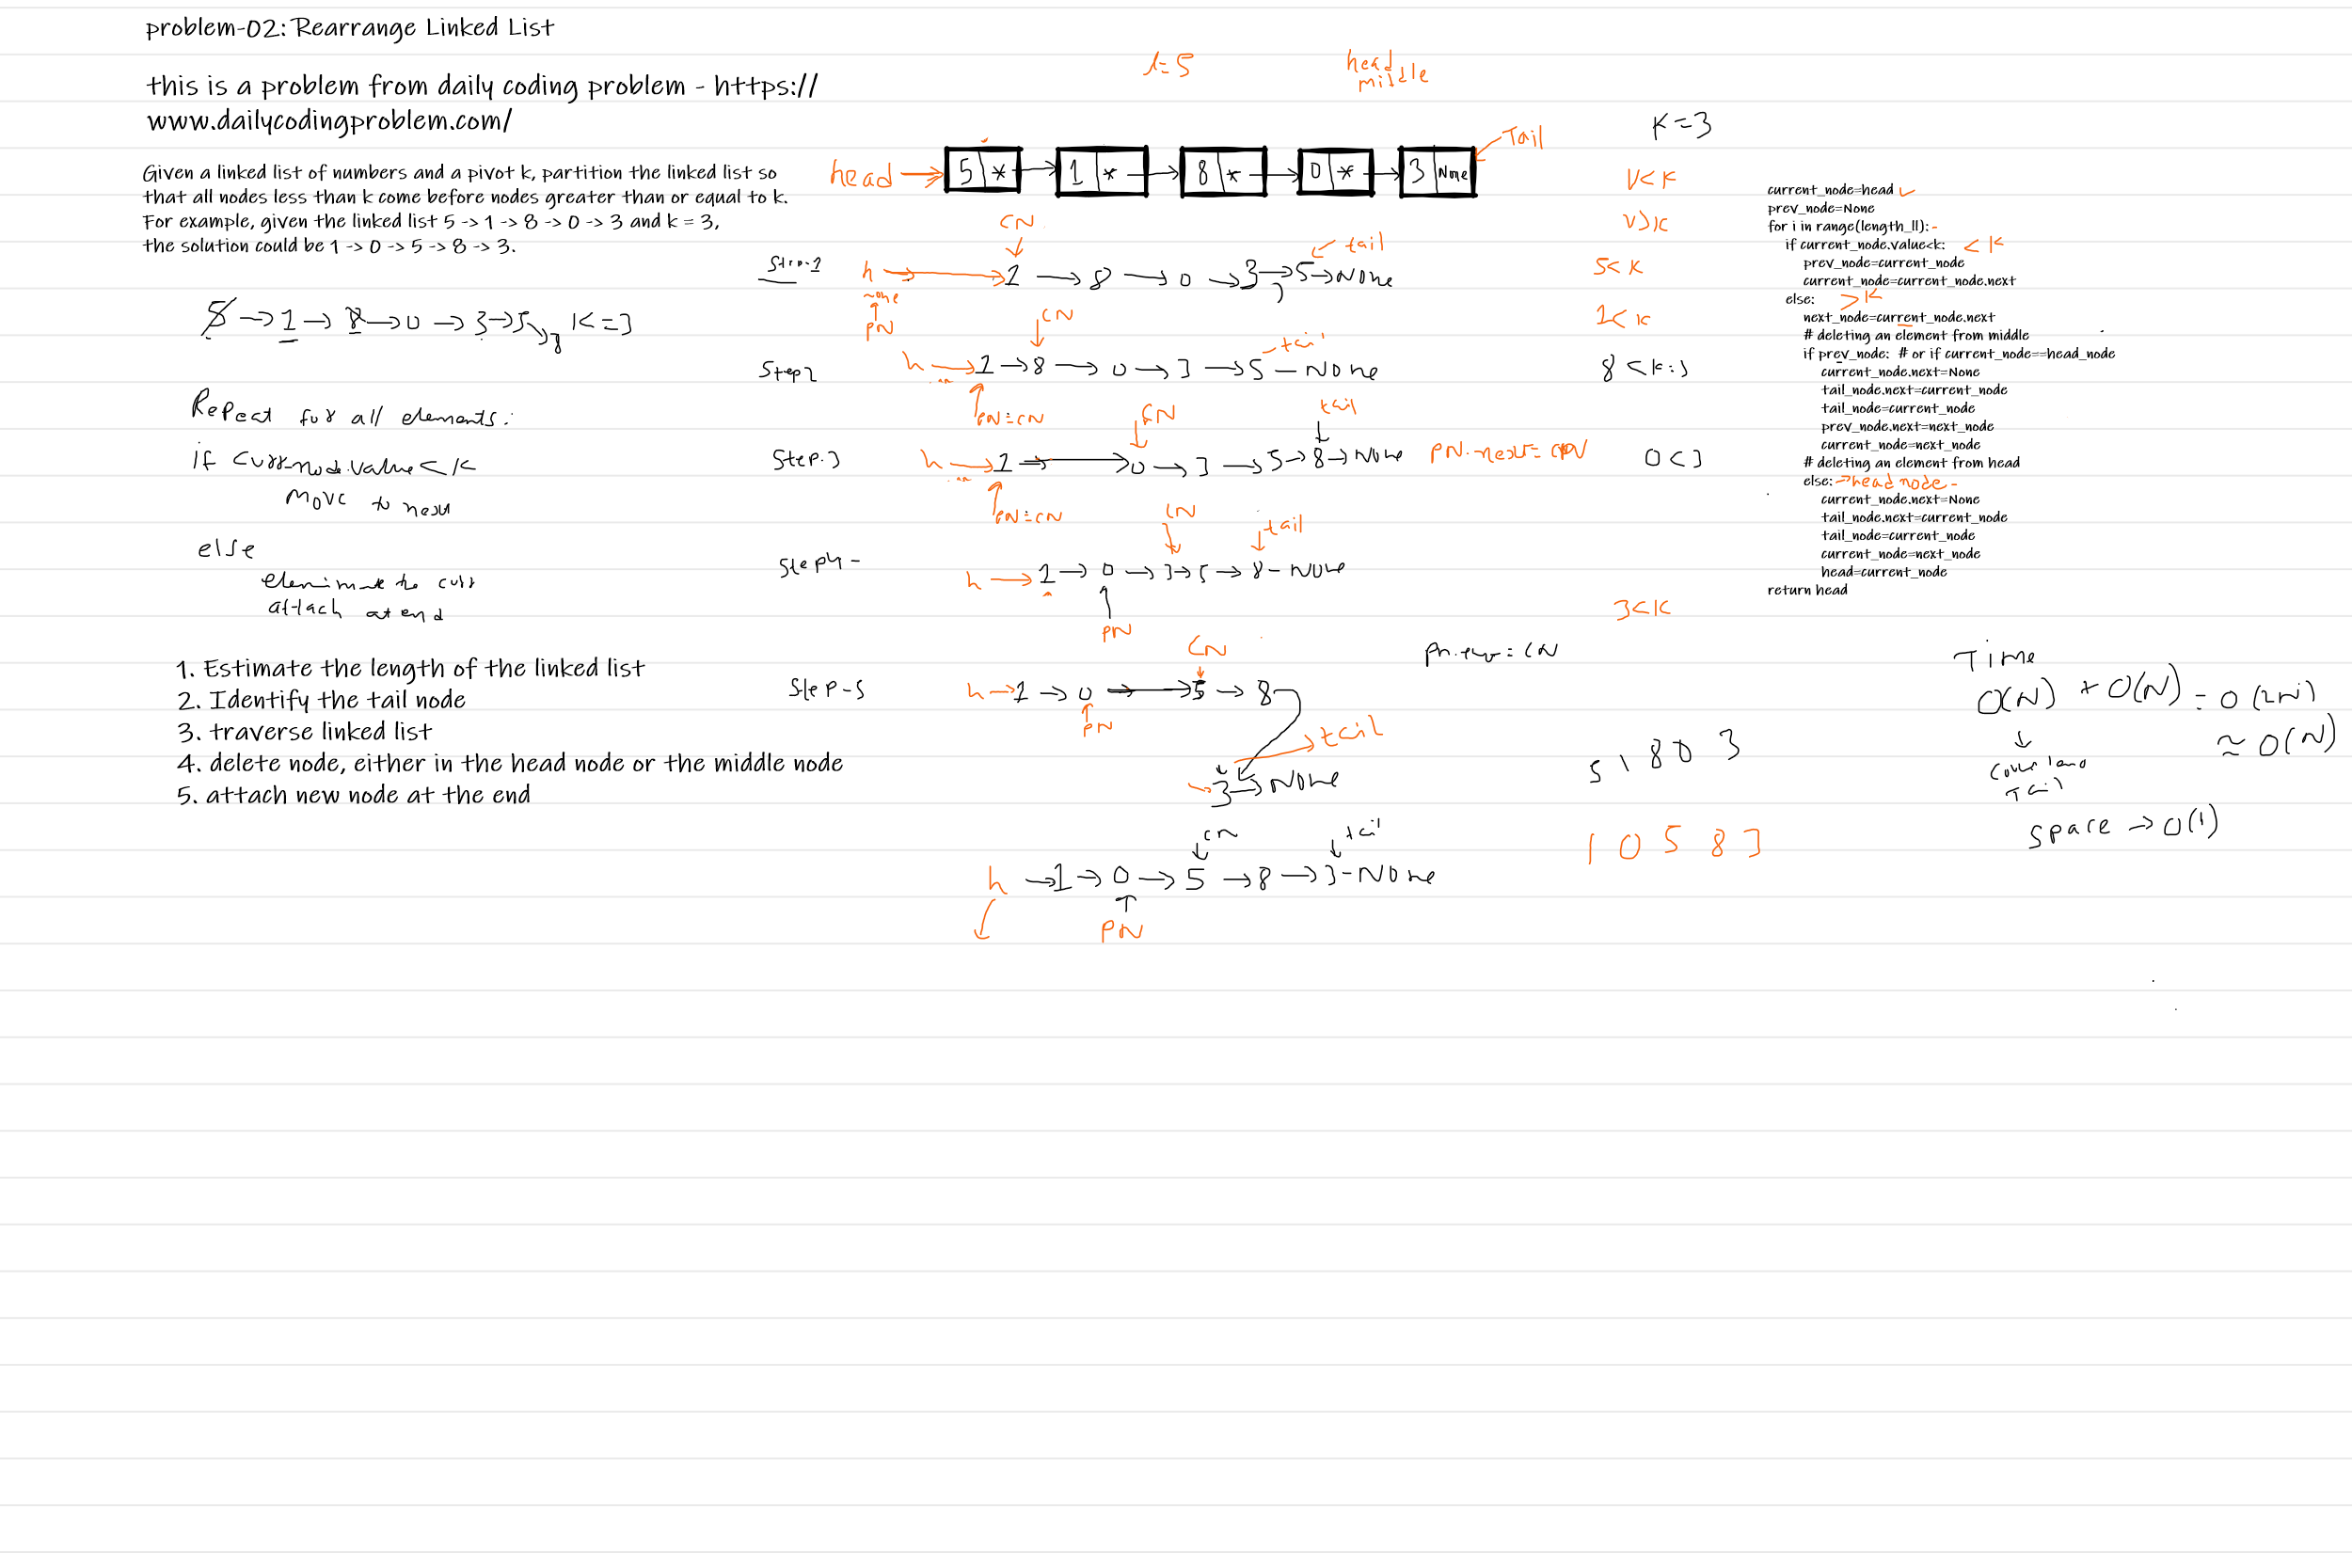 problem-02: Rearrange Linked List
this is a problem from daily coding problem - https://
www.dailycodingproblem.com/
Given a linked list of numbers and a pivot k, partition the linked list so
that all nodes less than k come before nodes greater than or equal to k.
For example, given the linked list 5 -> 1 -> 8 -> 0 -> 3 and k = 3,
the solution could be 1 -> 0 -> 5 -> 8 -> 3.
5 → 1 → 8 → 0 → 3 → 5 → 8 K=3
Repeat for all elements:
if curr-node.value < K
move to next
else
the curr
attach at end
1. Estimate the length of the linked list
2. Identify the tail node
3. traverse linked list
4. delete node, either in the head node or the middle node
5. attach new node at the end
l=5
head
middle
K=3
Tail
head → 5 * → 1 * → 8 * → 0 * → 3 None
V<K
V>K
CN
tail
Step-1
h → 1 → 8 → 0 → 3 → 5 → None
5<K
None
PN
CN
1<K
tail
Step2
h → 1 → 8 → 0 → 3 → 5 - None
8<K=3
PN=CN
CN
tail
Step-3
h → 1 → 0 → 3 → 5 → 8 → None
PN.next=CN
0<3
PN=CN
CN
tail
Step4-
h → 1 → 0 → 3 → 5 → 8 - None
PN
3<K
CN
Pn.next=CN
Step-5
h → 1 → 0 → 5 → 8
PN
tail
3 → None
5 1 8 0 3
CN
tail
1 0 5 8 3
h → 1 → 0 → 5 → 8 → 3 - None
PN
current_node=head
prev_node=None
for i in range(length_ll):-
if current_node.value<k: <K
prev_node=current_node
current_node=current_node.next
else: >K
next_node=current_node.next
# deleting an element from middle
if prev_node: # or if current_node==head_node
current_node.next=None
tail_node.next=current_node
tail_node=current_node
prev_node.next=next_node
current_node=next_node
# deleting an element from head
else: → head node -
current_node.next=None
tail_node.next=current_node
tail_node=current_node
current_node=next_node
head=current_node
return head
Time
O(N) + O(N) = O(2N)
≈ O(N)
Tail
Space → O(1)